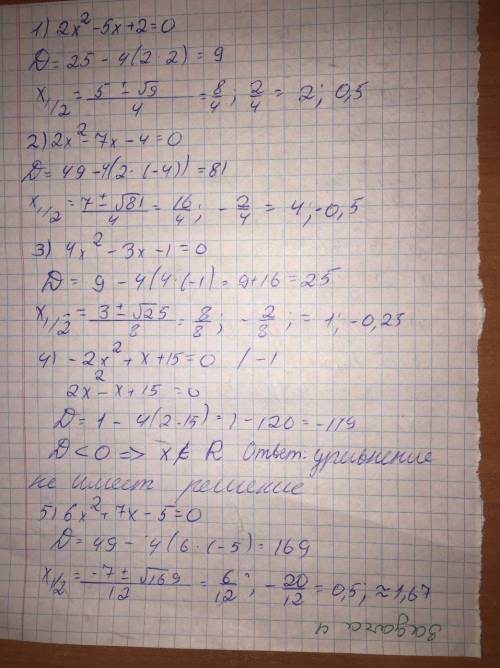 1) 2x²-5x+2=0
D=25-4(2·2)=9
x₁/₂=(5±√9)/4=8/4; 2/4=2; 0,5
2) 2x²-7x-4=0
D=49-4(2·(-4))=81
x₁/₂=(7±√81)/4=16/4; -2/4=4;-0,5
3) 4x²-3x-1=0
D=9-4(4·(-1)=9+16=25
x₁/₂=(3±√25)/8=8/8; -2/8; =1; -0,25
4) -2x²+x+15=0 /-1
2x²-x+15=0
D=1-4(2·15)=1-120=-119
D<0=>x∉R Ответ: уравнение
не имеет решение
5) 6x²+7x-5=0
D=49-4(6·(-5)=169
x₁/₂=(-7±√169)/12=6/12; -20/12=0,5; ≈1,67
Задача 4